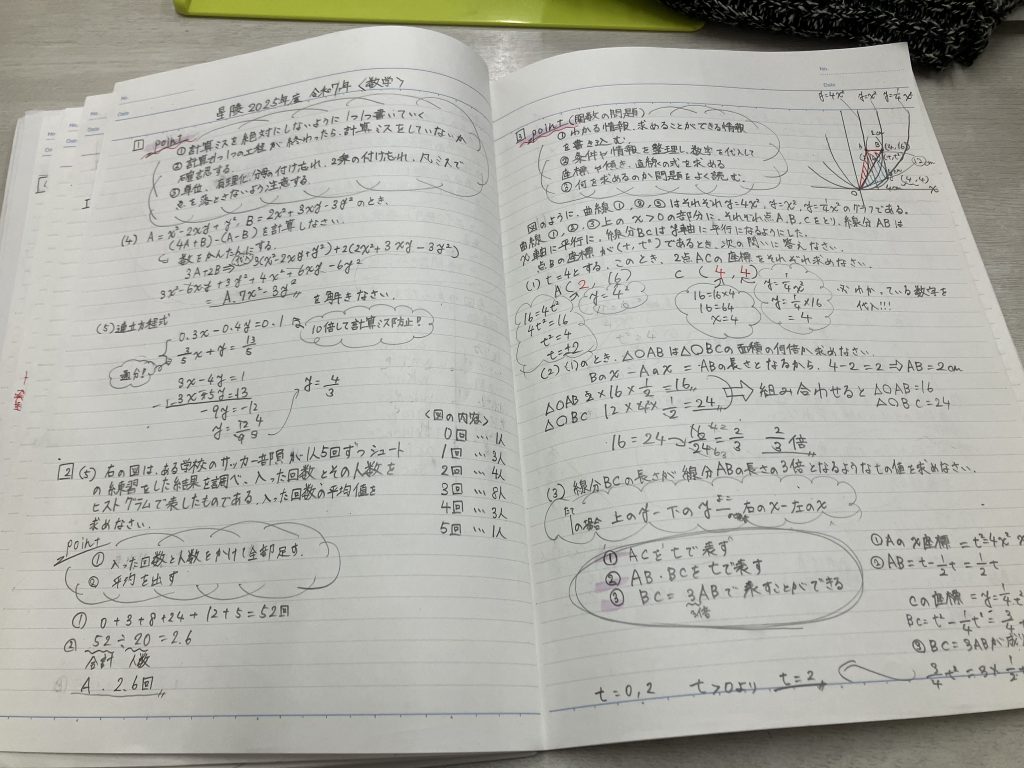 星陵 2025年度 令和7年 〈数学〉
1 point
①計算ミスを絶対にしないように1つ1つ書いていく
②計算が1つの工程が終わったら、計算ミスをしていないか
確認する.
③単位、有理化、分数の付け忘れ、2乗の付け忘れ、凡ミスで
点を落とさないよう注意する.
(4) A=x²-2xy+y², B=2x²+3xy-3y²のとき、
(4A+B)-(A-B)を計算しなさい.
数をかんたんにする.
3A+2B ⇒ 3(x²-2xy+y²)+2(2x²+3xy-3y²)
3x²-6xy+3y²+4x²+6xy-6y²
= A. 7x²-3y²
(5) 連立方程式 を解きなさい.
0.3x-0.4y=0.1 10倍して計算ミス防止!!
通分! 3/5x+y=13/5
3x-4y=1
3x+5y=13
-9y=-12
y=12/9 4/3
y=4/3
2 (5) 右の図は、ある学校のサッカー部員が1人5回ずつシュート
の練習をした結果を調べ、入った回数とその人数を
ヒストグラムで表したものである.入った回数の平均値を
求めなさい.
〈図の内容〉
0回…1人
1回…3人
2回…4人
3回…8人
4回…3人
5回…1人
point
① 入った回数と人数をかけて全部足す.
② 平均を出す
① 0+3+8+24+12+5=52回
② 52÷20=2.6
合計 人数
A. 2.6回
3 point (関数の問題)
①わかる情報、求めることができる情報
を書き込む.
②条件や情報を整理し、数字を代入して
座標や傾き、直線の式を求める
③何を求めるのか問題をよく読む.
y=4x² y=x² y=1/4x²
2cm
(4,16)
(t,t²)
12cm
(4,4)
O
x
図のように、曲線①,②,③はそれぞれy=4x², y=x², y=1/4x²のグラフである.
曲線①,②,③上のx>0の部分に、それぞれ点A,B,Cをとり、線分ABは
x軸に平行に、線分BCはy軸に平行になるようにした.
点Bの座標が(t, t²)であるとき、次の問いに答えなさい.
(1) t=4とする.このとき、2点ACの座標をそれぞれ求めなさい.
A(2, 16) C (4, 4)
16=4t² y=4x²
4t²=16
t²=4
t=±2
16=16×4
16=64
x=4
y=1/4x²
y=1/4×16
=4
※わかっている数字を
代入!!!
(2) (1)のとき、△OABは△OBCの面積の何倍か求めなさい.
Bのx-Aのx=ABの長さとなるから、4-2=2⇒AB=2cm
△OAB 2×16×1/2=16 組み合わせると △OAB=16
△OBC 12×4×1/2=24 △OBC=24
16=24 16/24=2/3 2/3倍
(3) 線分BCの長さが線分ABの長さの3倍となるようなtの値を求めなさい.
たての場合 上のy-下のy よこ 右のx-左のx
① ACをtで表す
② AB・BCをtで表す
③ BC=3ABで表すことができる
3倍
①Aのx座標=t²=4x²
②AB=t-1/2t=1/2t
Cの座標=y=1/4t²
BC=t²-1/4t²=3/4
③BC=3ABが成り
3/4t²=3×1/2
t=0,2 t>0より t=2